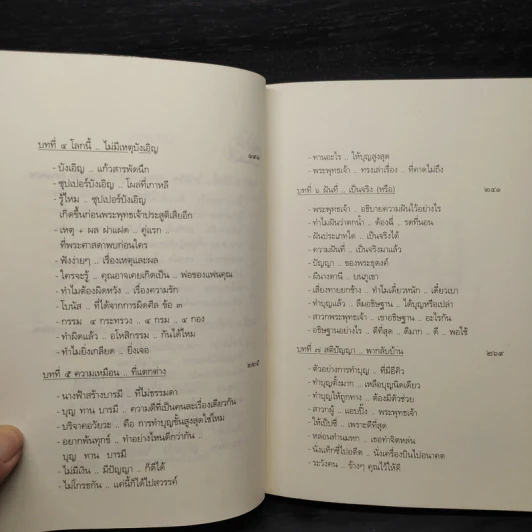 บทที่ ๔ โลกนี้ .. ไม่มีเหตุบังเอิญ
- บังเอิญ .. แก้วสารพัดนึก
- ซุปเปอร์บังเอิญ .. โผล่ที่เกาหลี
- รู้ไหม .. ซุปเปอร์บังเอิญ
เกิดขึ้นก่อนพระพุทธเจ้าประสูติเสียอีก
- เหตุ + ผล ฝาแฝด .. คู่แรก ..
ที่พระศาสดาพบก่อนใคร
- ฟังง่ายๆ .. เรื่องเหตุและผล
- ใครจะรู้ .. คุณอาจเคยเกิดเป็น .. พ่อของแฟนคุณ
- ทำไมต้องผิดหวัง .. เรื่องความรัก
- โบนัส .. ที่ได้จากการผิดศีล ข้อ ๓
- กรรม ๔ กระทรวง .. ๔ กรม .. ๔ กอง
- ทำผิดแล้ว .. อโหสิกรรม .. กันได้ไหม
- ทำไมยิ่งเกลียด .. ยิ่งเจอ
บทที่ ๕ ความเหมือน .. ที่แตกต่าง ๒๒๕
- นางฟ้าสร้างบารมี .. ที่ไม่ธรรมดา
- บุญ ทาน บารมี .. ความดีที่เป็นคนละเรื่องเดียวกัน
- บริจาคอวัยวะ .. คือ การทำบุญขั้นสูงสุดใช่ไหม
- อยากพ้นทุกข์ .. ทำอย่างไหนดีกว่ากัน ..
บุญ ทาน บารมี
- ไม่มีเงิน .. มีปัญญา .. ก็ดีได้
- ไม่โกรธกัน .. แค่นี้ก็ได้ไปสวรรค์
- ทานอะไร .. ให้บุญสูงสุด
- พระพุทธเจ้า .. ทรงเล่าเรื่อง .. ที่คาดไม่ถึง
บทที่ ๖ ฝันที่ .. เป็นจริง (หรือ) ๒๔๑
- พระพุทธเจ้า .. อธิบายความฝันไว้อย่างไร
- ทำไมฝันว่าตกน้ำ .. ต้องฉี่ .. รดที่นอน
- ฝันประเภทใด .. เป็นจริงได้
- ความฝันที่ .. เป็นจริงมาแล้ว
- ปัญญา .. ของพระธุดงค์
- ฝันงดานี .. บนภูเขา
- เสี่ยงทายยกช้าง .. ทำไมเดี๋ยวหนัก .. เดี๋ยวเบา
- ทำบุญแล้ว .. ลืมอธิษฐาน .. ได้บุญหรือเปล่า
- สาวกพระพุทธเจ้า .. เขาอธิษฐาน .. อะไรกัน
- อธิษฐานอย่างไร .. ดีที่สุด .. ดีมาก .. ดี .. พอใช้
บทที่ ๗ สติปัญญา .. พากลับบ้าน ๒๖๙
- ตัวอย่างการทำบุญ .. ที่มีอีคิว
- ทำบุญตั้งมาก .. เหลือบุญนิดเดียว
- ทำบุญให้ถูกทาง .. ต้องมีตัวช่วย
- สาวกผู้ .. แอบปิ๊ง .. พระพุทธเจ้า
- ให้เป๊ปซี่ .. เพราะดีที่สุด
- หล่อนทำนมหก .. เธอทำจิตหล่น
- นั่งแท็กซี่ไปอดีต .. นั่งเครื่องบินไปอนาคต
- ระวังคน .. ข้างๆ คุณไว้ให้ดี